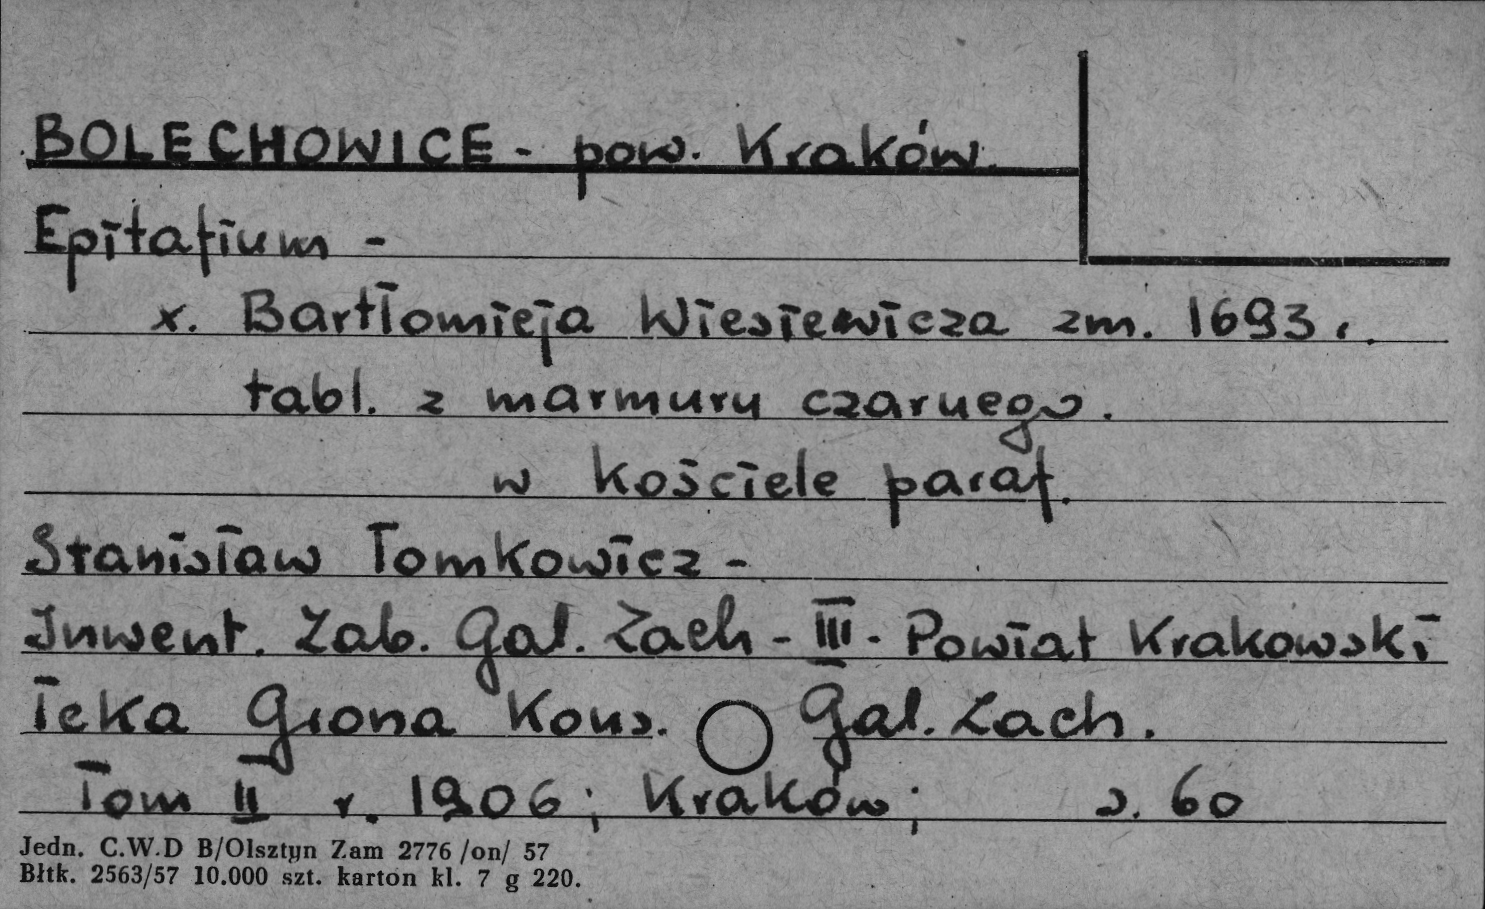 BOLECHOWICE - pow. Kraków.
Epitafium -
x. Bartłomieja Wiesiewicza zm. 1693 r.
tabl. z marmuru czarnego.
w kościele paraf.
Stanisław Tomkowicz -
Inwent. Zab. Gal. Zach - III - Powiat Krakowski
Teka Grona Kons. Gal. Zach.
Tom II r. 1906; Kraków; s. 60
Jedn. C.W.D B/Olsztyn Zam 2776 /on/ 57
Błtk. 2563/57 10.000 szt. karton kl. 7 g 220.